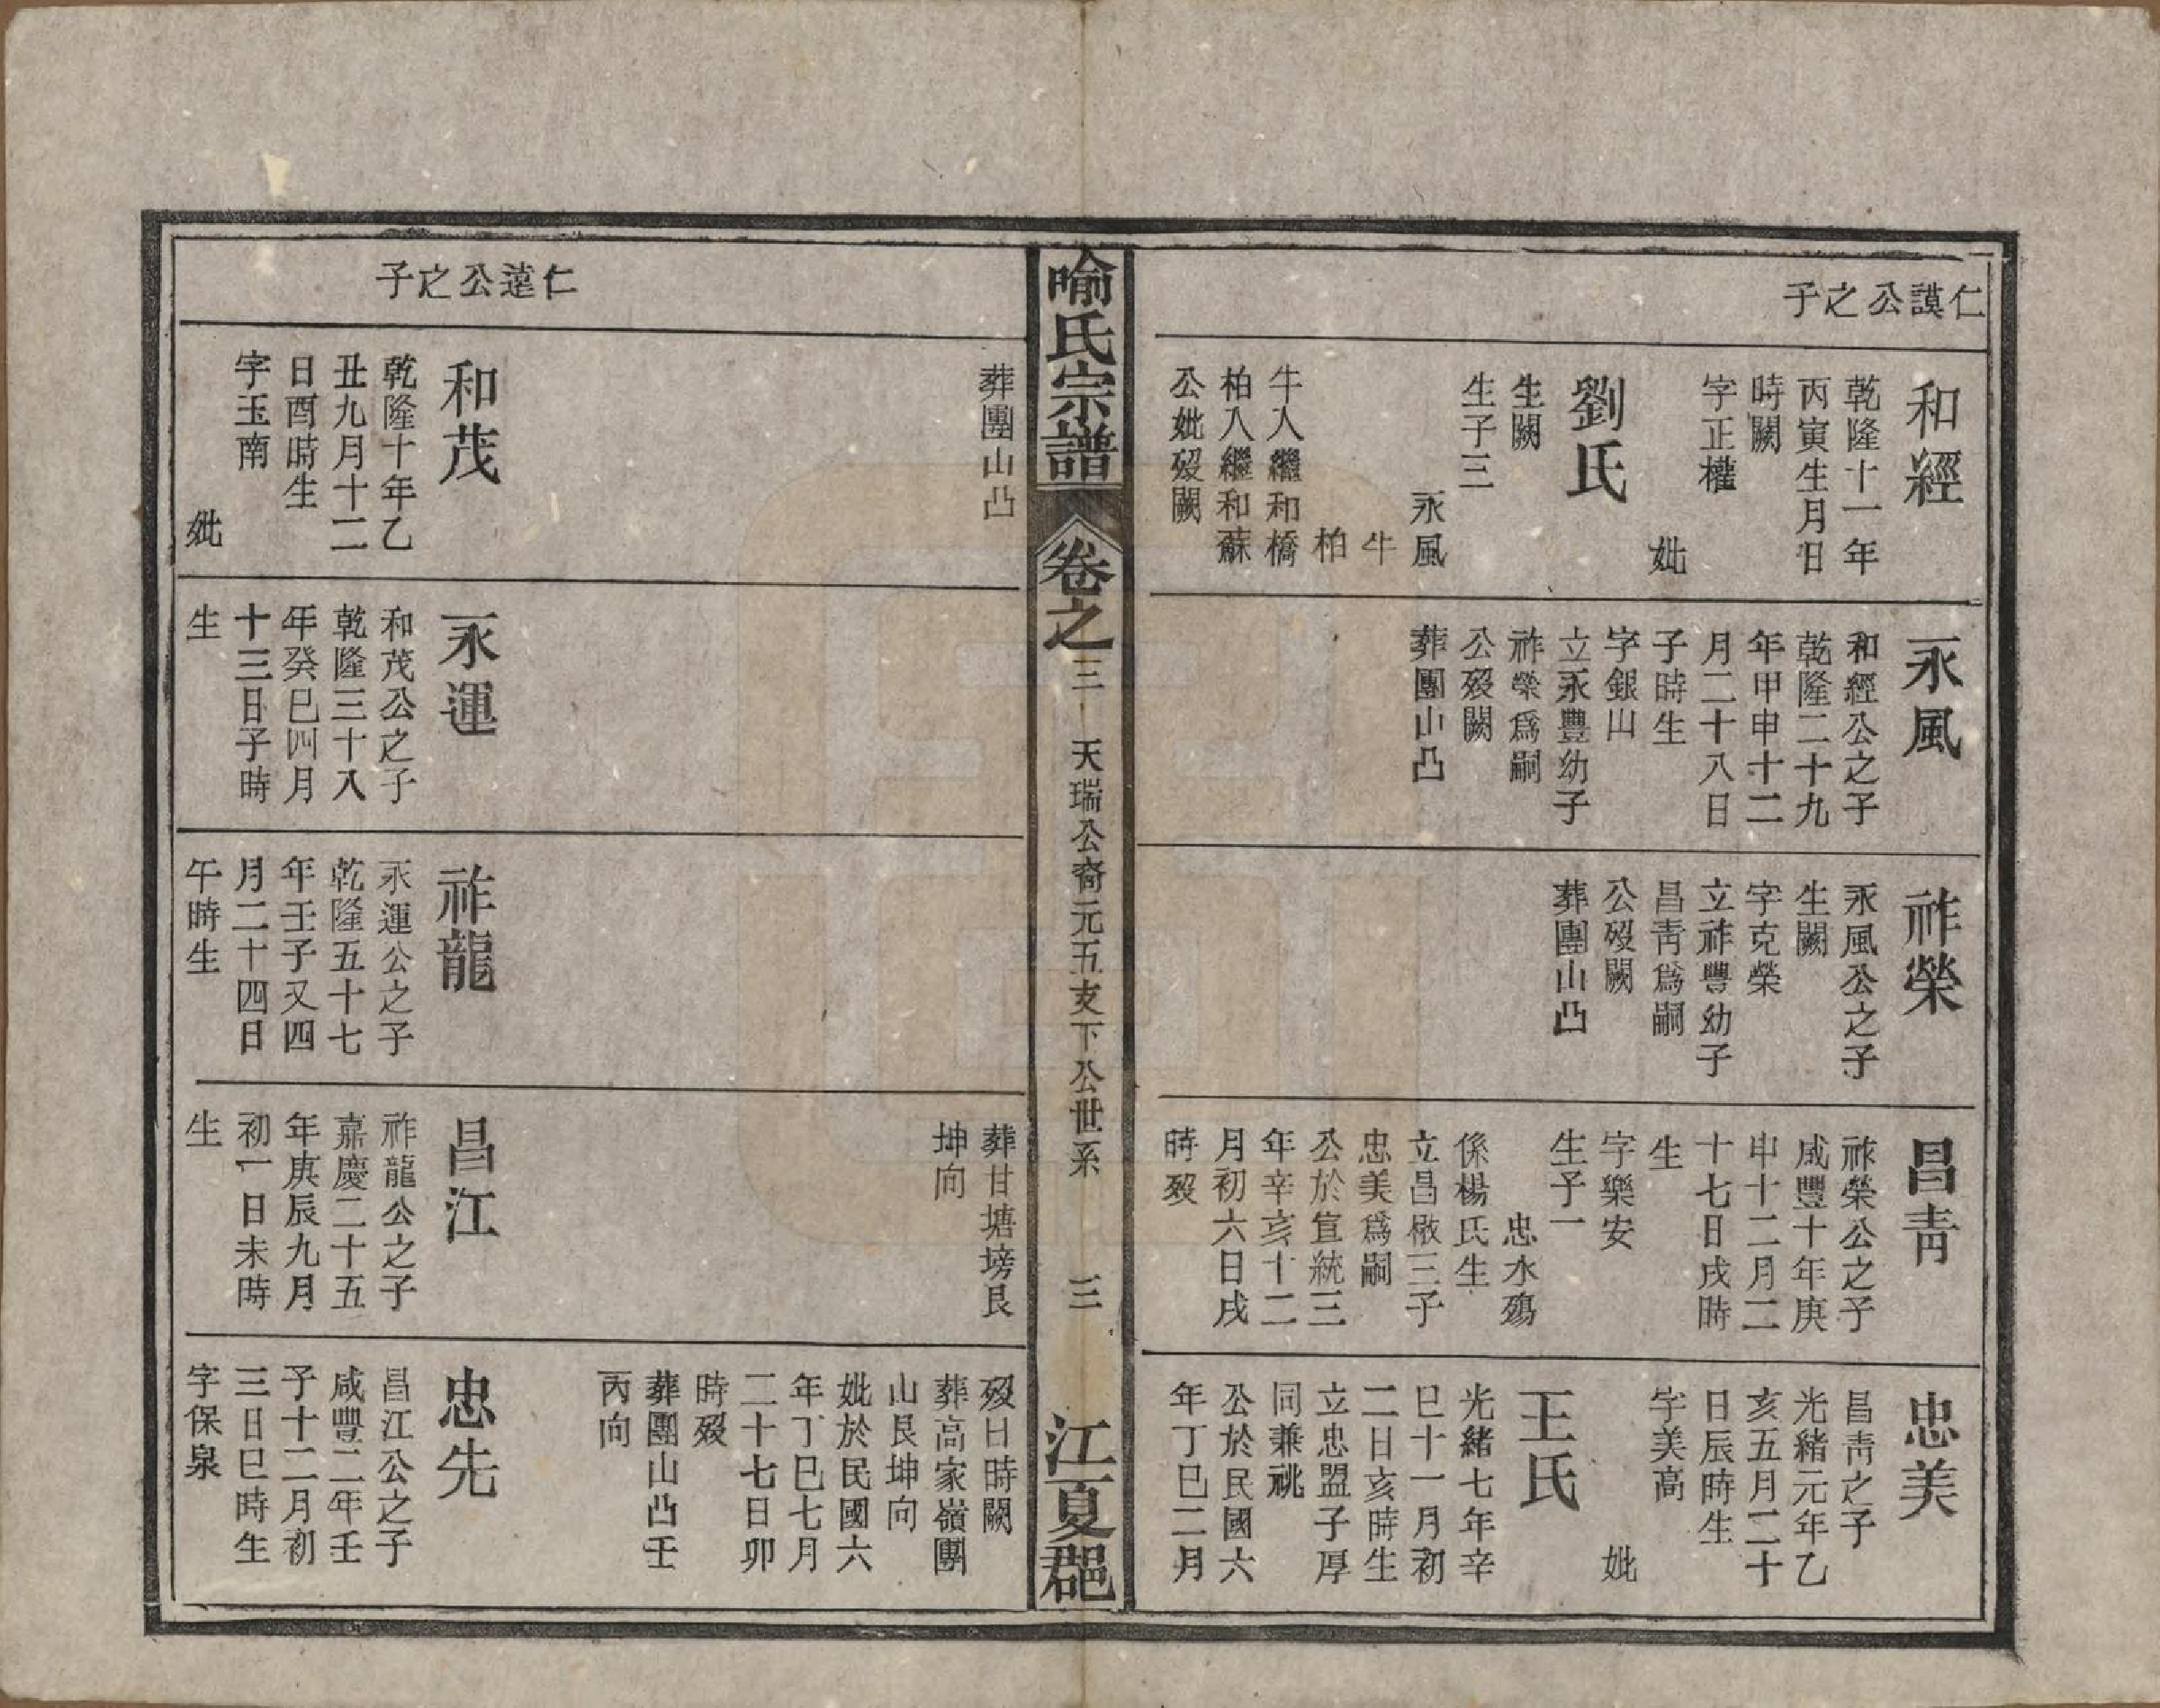 仁謨公之子
和經
乾隆十一年
丙寅生月日
時闕
字正權
妣
劉氏
生闕
生子三
永風
牛
柏
牛入繼和橋
柏入繼和蘇
公妣歿闕
永風
和經公之子
乾隆二十九
年甲申十二
月二十八日
子時生
字銀山
立永豐幼子
祚榮爲嗣
公歿闕
葬團山凸
祚榮
永風公之子
生闕
字克榮
立祚豐幼子
昌靑爲嗣
公歿闕
葬團山凸
昌靑
祚榮公之子
咸豐十年庚
申十二月二
十七日戌時
生
字樂安
生子一
忠水殤
係楊氏生
立昌楸三子
忠美爲嗣
公於宣統三
年辛亥十二
月初六日戌
時歿
忠美
昌靑之子
光緒元年乙
亥五月二十
日辰時生
字美高
妣
王氏
光緒七年辛
巳十一月初
二日亥時生
立忠盟子厚
同兼祧
公於民國六
年丁巳二月
喻氏宗譜
卷之三
天瑞公裔元五支下公世系
三
江夏郡
葬團山凸
葬甘塘塝艮
坤向
歿日時闕
葬高家嶺團
山艮坤向
妣於民國六
年丁巳七月
二十七日卯
時歿
葬團山凸壬
丙向
仁遠公之子
和茂
乾隆十年乙
丑九月十二
日酉時生
字玉南
妣
永運
和茂公之子
乾隆三十八
年癸巳四月
十三日子時
生
祚龍
永運公之子
乾隆五十七
年壬子又四
月二十四日
午時生
昌江
祚龍公之子
嘉慶二十五
年庚辰九月
初一日未時
生
忠先
昌江公之子
咸豐二年壬
子十二月初
三日巳時生
字保泉